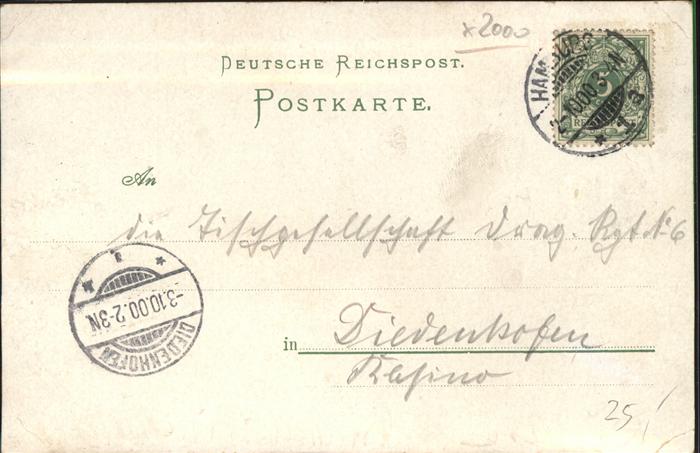 x2000
DEUTSCHE REICHSPOST.
POSTKARTE.
HAMBURG
2.10.00.3-4N
* 1 a
5
An
die Tischgesellschaft Drag. Rgt. N. 6
-3.10.00.2-3N
DIEDENHOFEN
in Diedenhofen
Kasino
25/